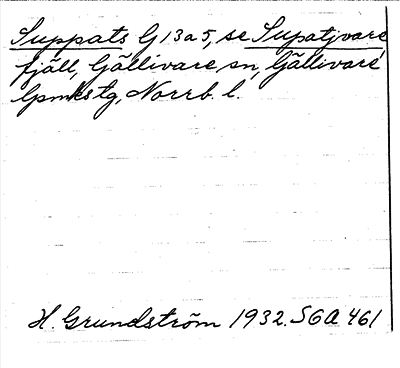 Suppats G13a5, se Supatjvare
fjäll, Gällivare sn, Gällivare
lpmkstg, Norrb. l.
H. Grundström 1932. SGA 461